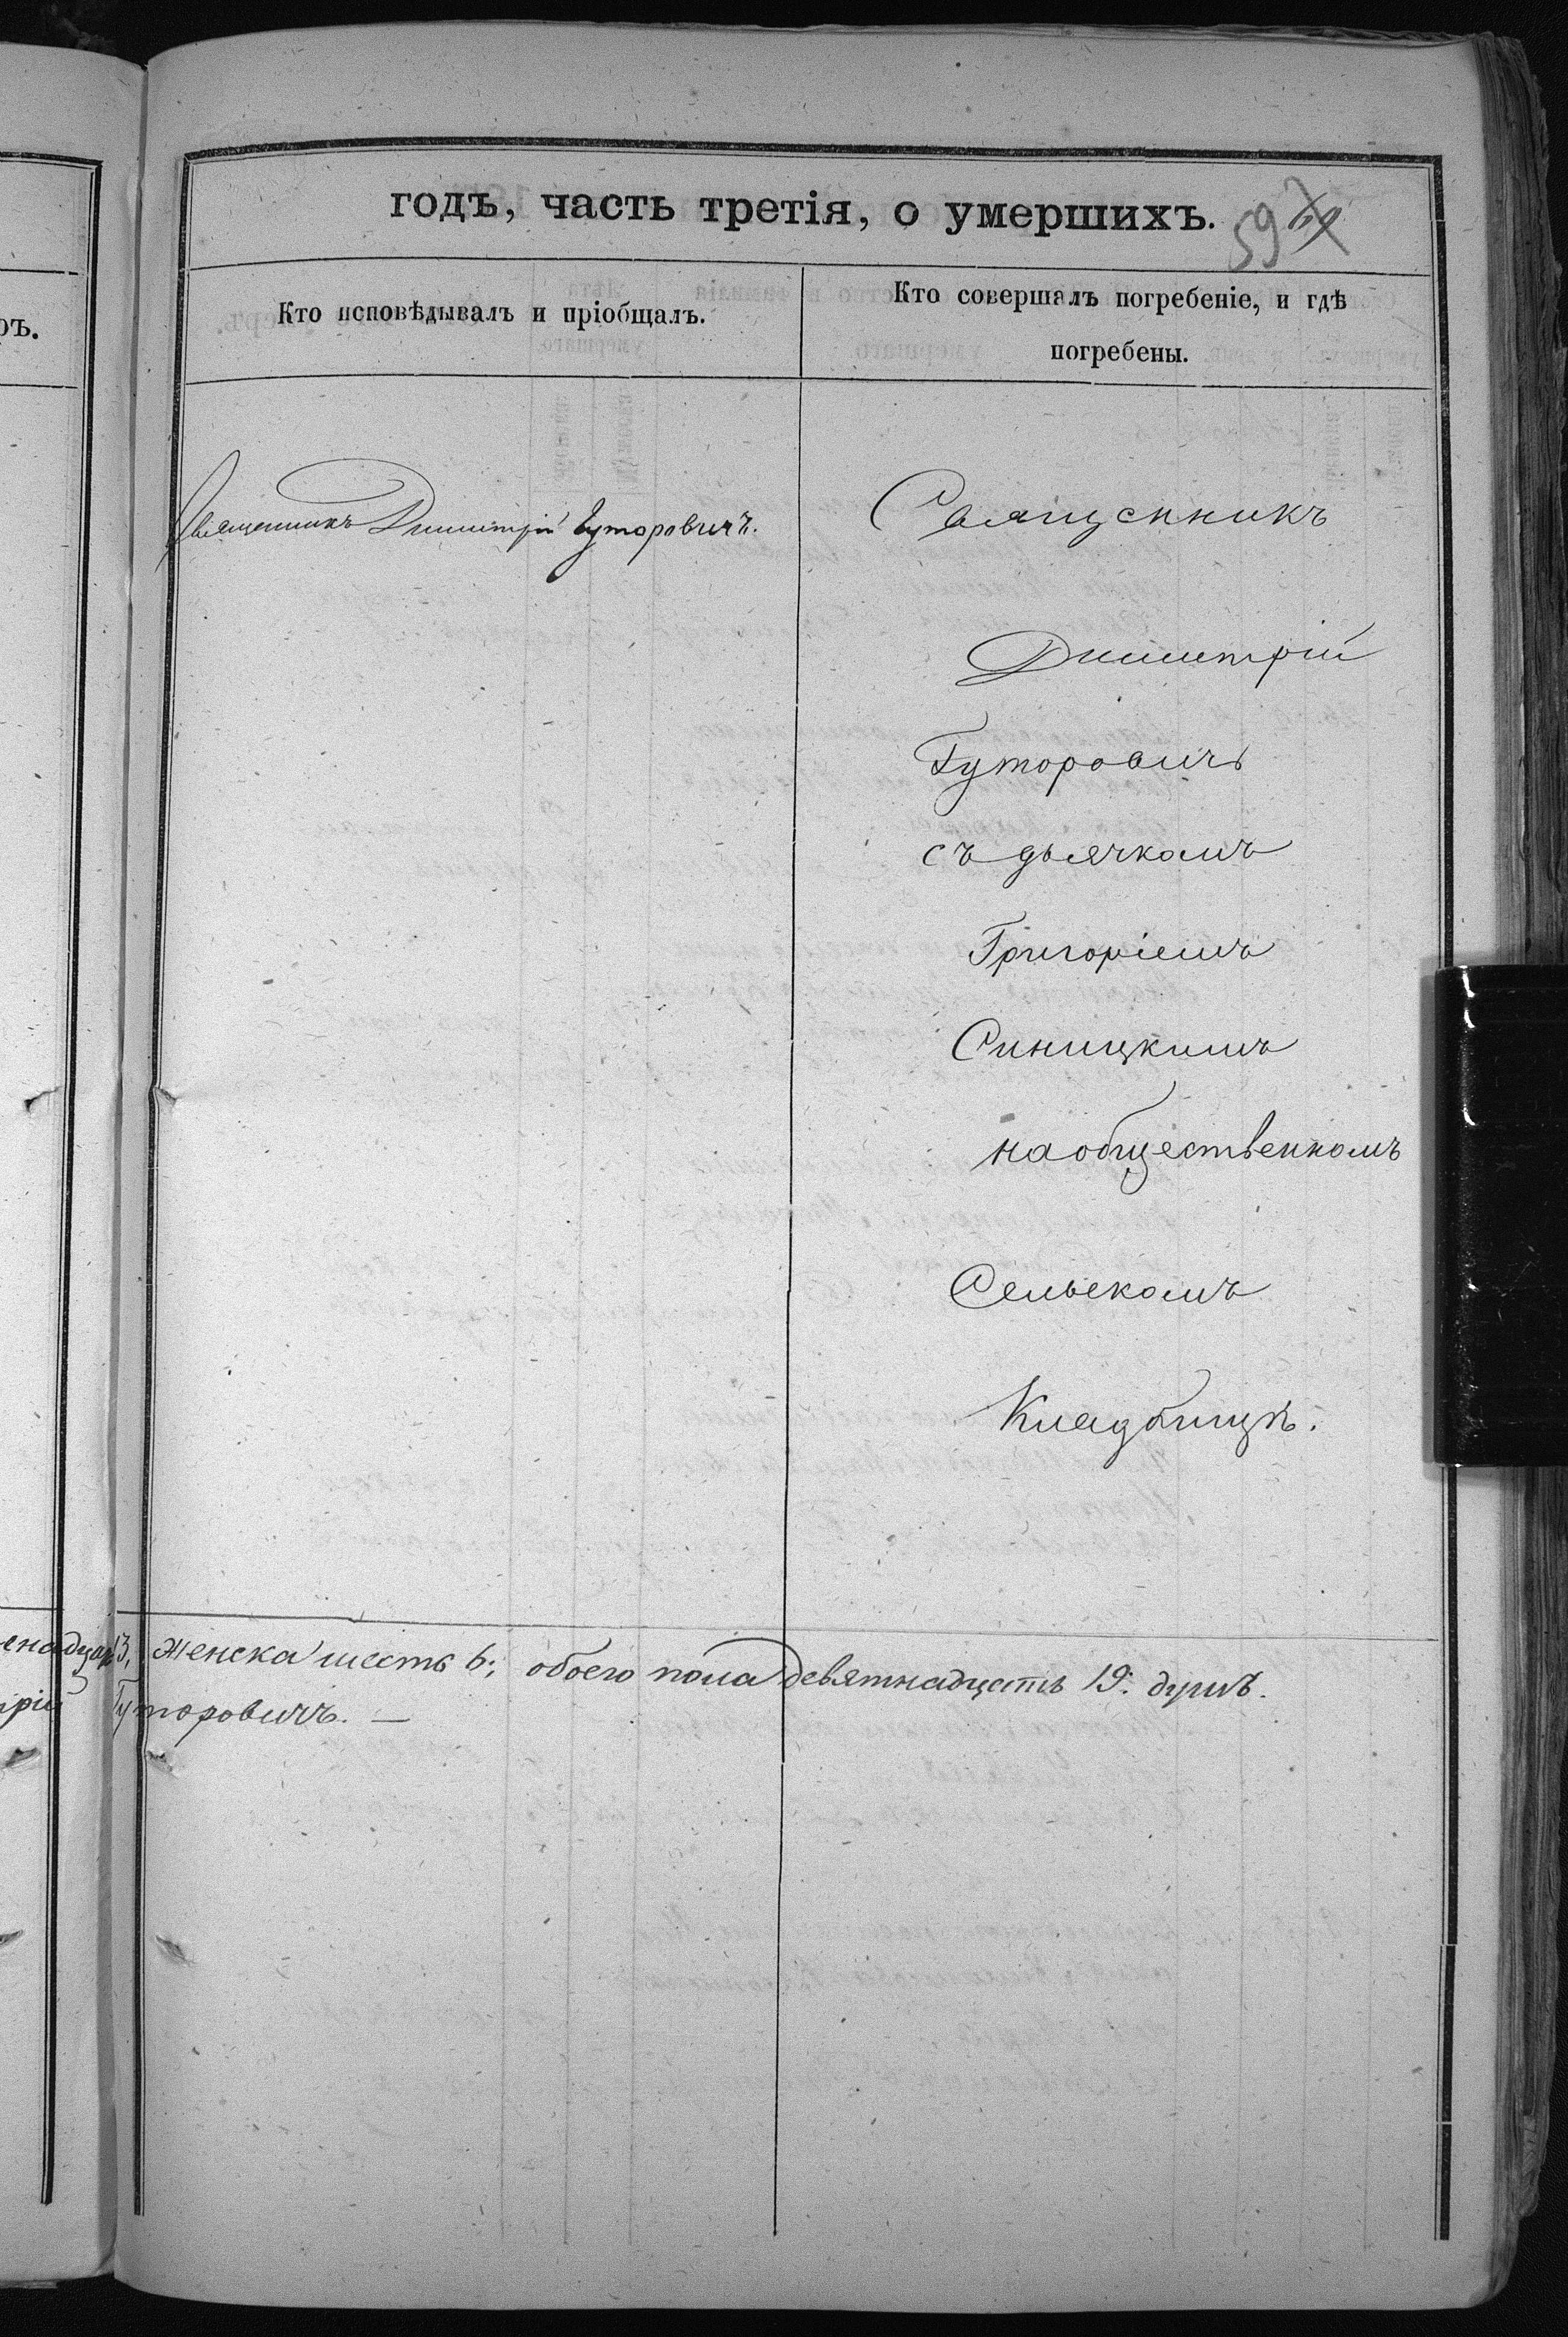 годъ, часть третія, о умершихъ.
59
Кто исповѣдывалъ и пріобщалъ.
Кто совершалъ погребеніе, и гдѣ
погребены.
ръ.
Священникъ Димитрій Гуторовичъ.
Священникъ
Димитрій
Гуторовичъ
съ дьячкомъ
Григоріемъ
Синицкимъ
на общественномъ
Сельскомъ
Кладбищѣ.
13, женска шесть 6; обоего пола девятнадцать 19: душъ.
трій Гуторовичъ. —